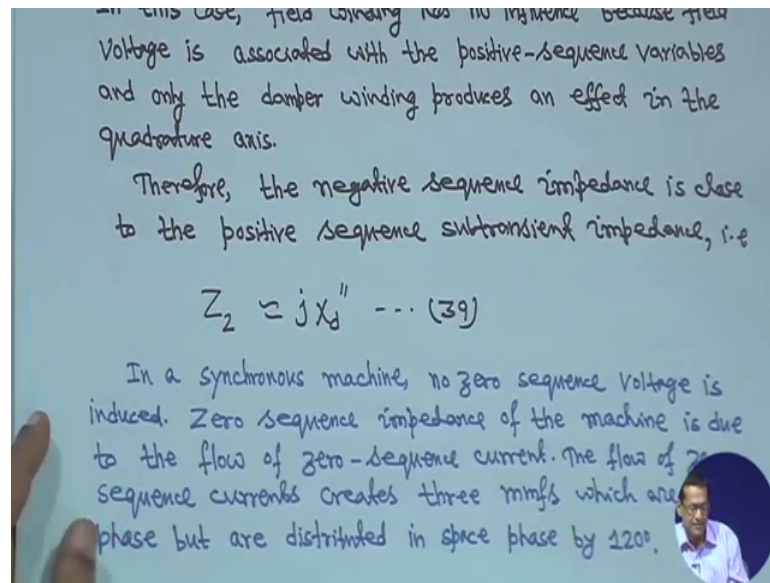 In this case, field winding has no influence because field
Voltage is associated with the positive-sequence variables
and only the damper winding produces an effect in the
quadrature axis.
Therefore, the negative sequence impedance is close
to the positive sequence subtransient impedance, i.e
Z₂ ≃ jX_d'' --- (39)
In a synchronous machine, no zero sequence voltage is
induced. Zero sequence impedance of the machine is due
to the flow of zero-sequence current. The flow of
sequence currents creates three mmfs which are
phase but are distributed in space phase by 120°.